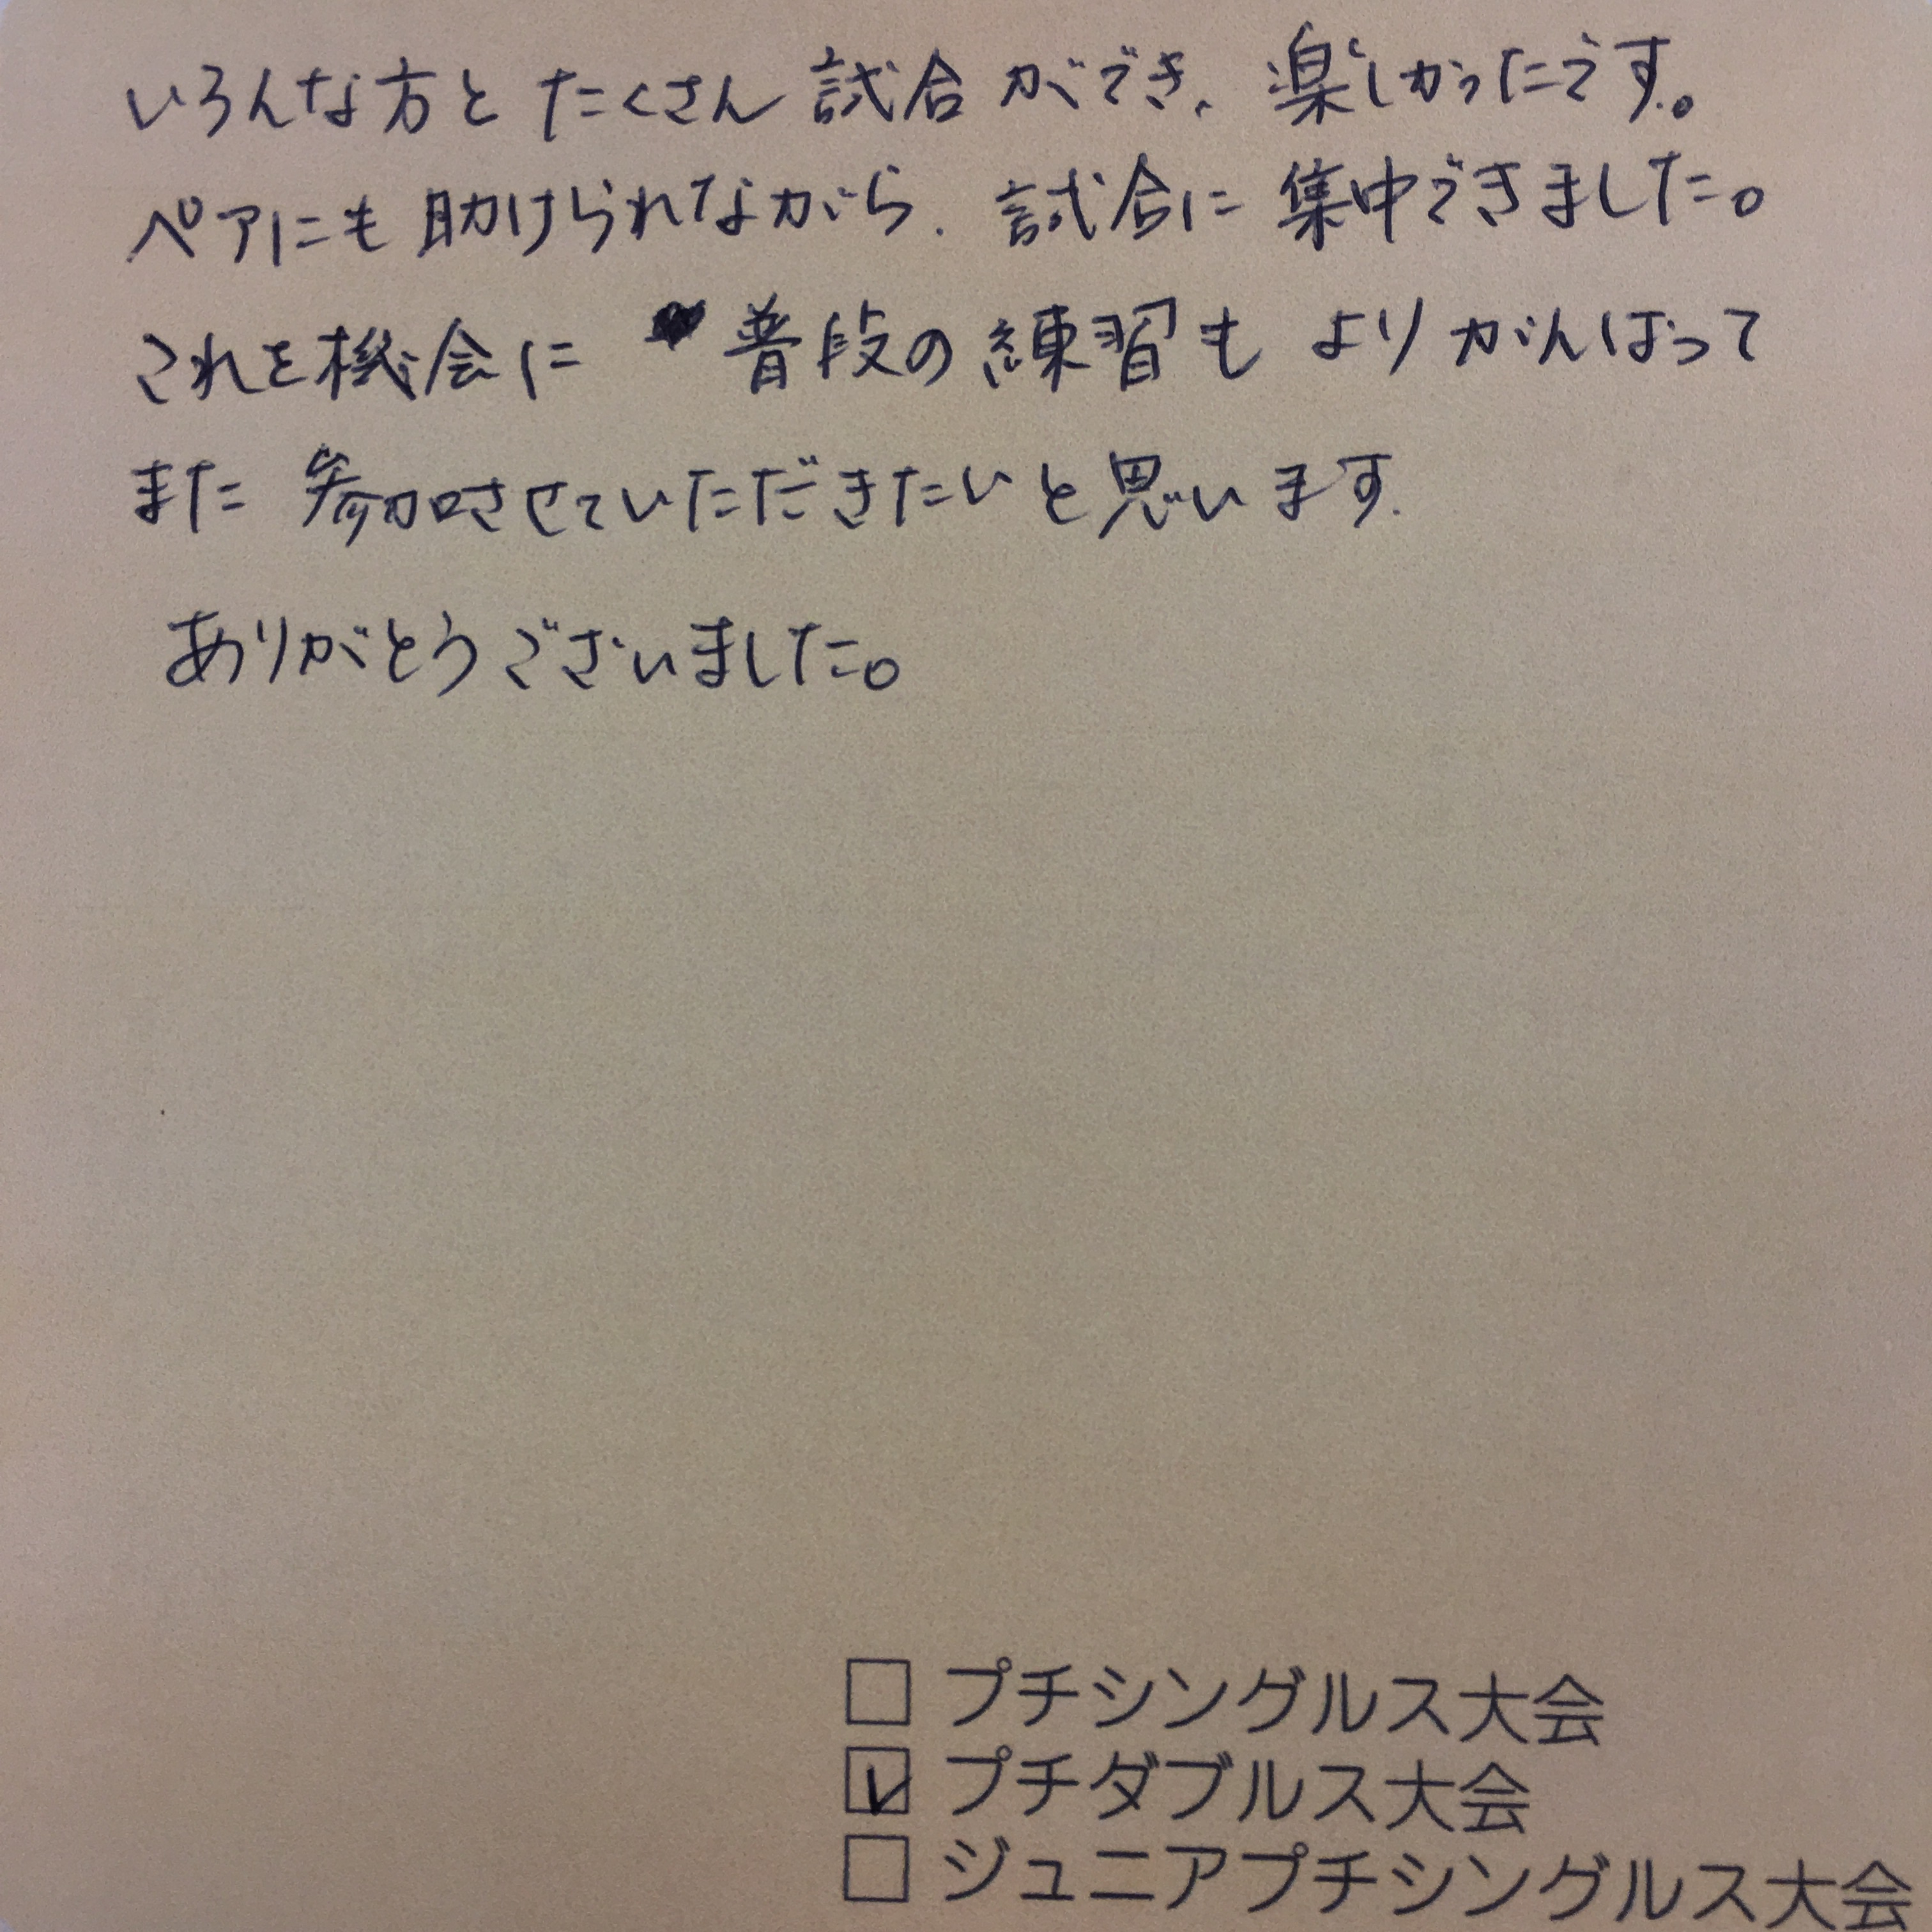 いろんな方と たくさん 試合ができ、楽しかったです。
ペアにも 助けられながら、試合に 集中できました。
これを機会に 普段の練習も よりがんばって
また 参加させていただきたいと思います.
ありがとうございました。
□ プチシングルス大会
☑ プチダブルス大会
□ ジュニアプチシングルス大会